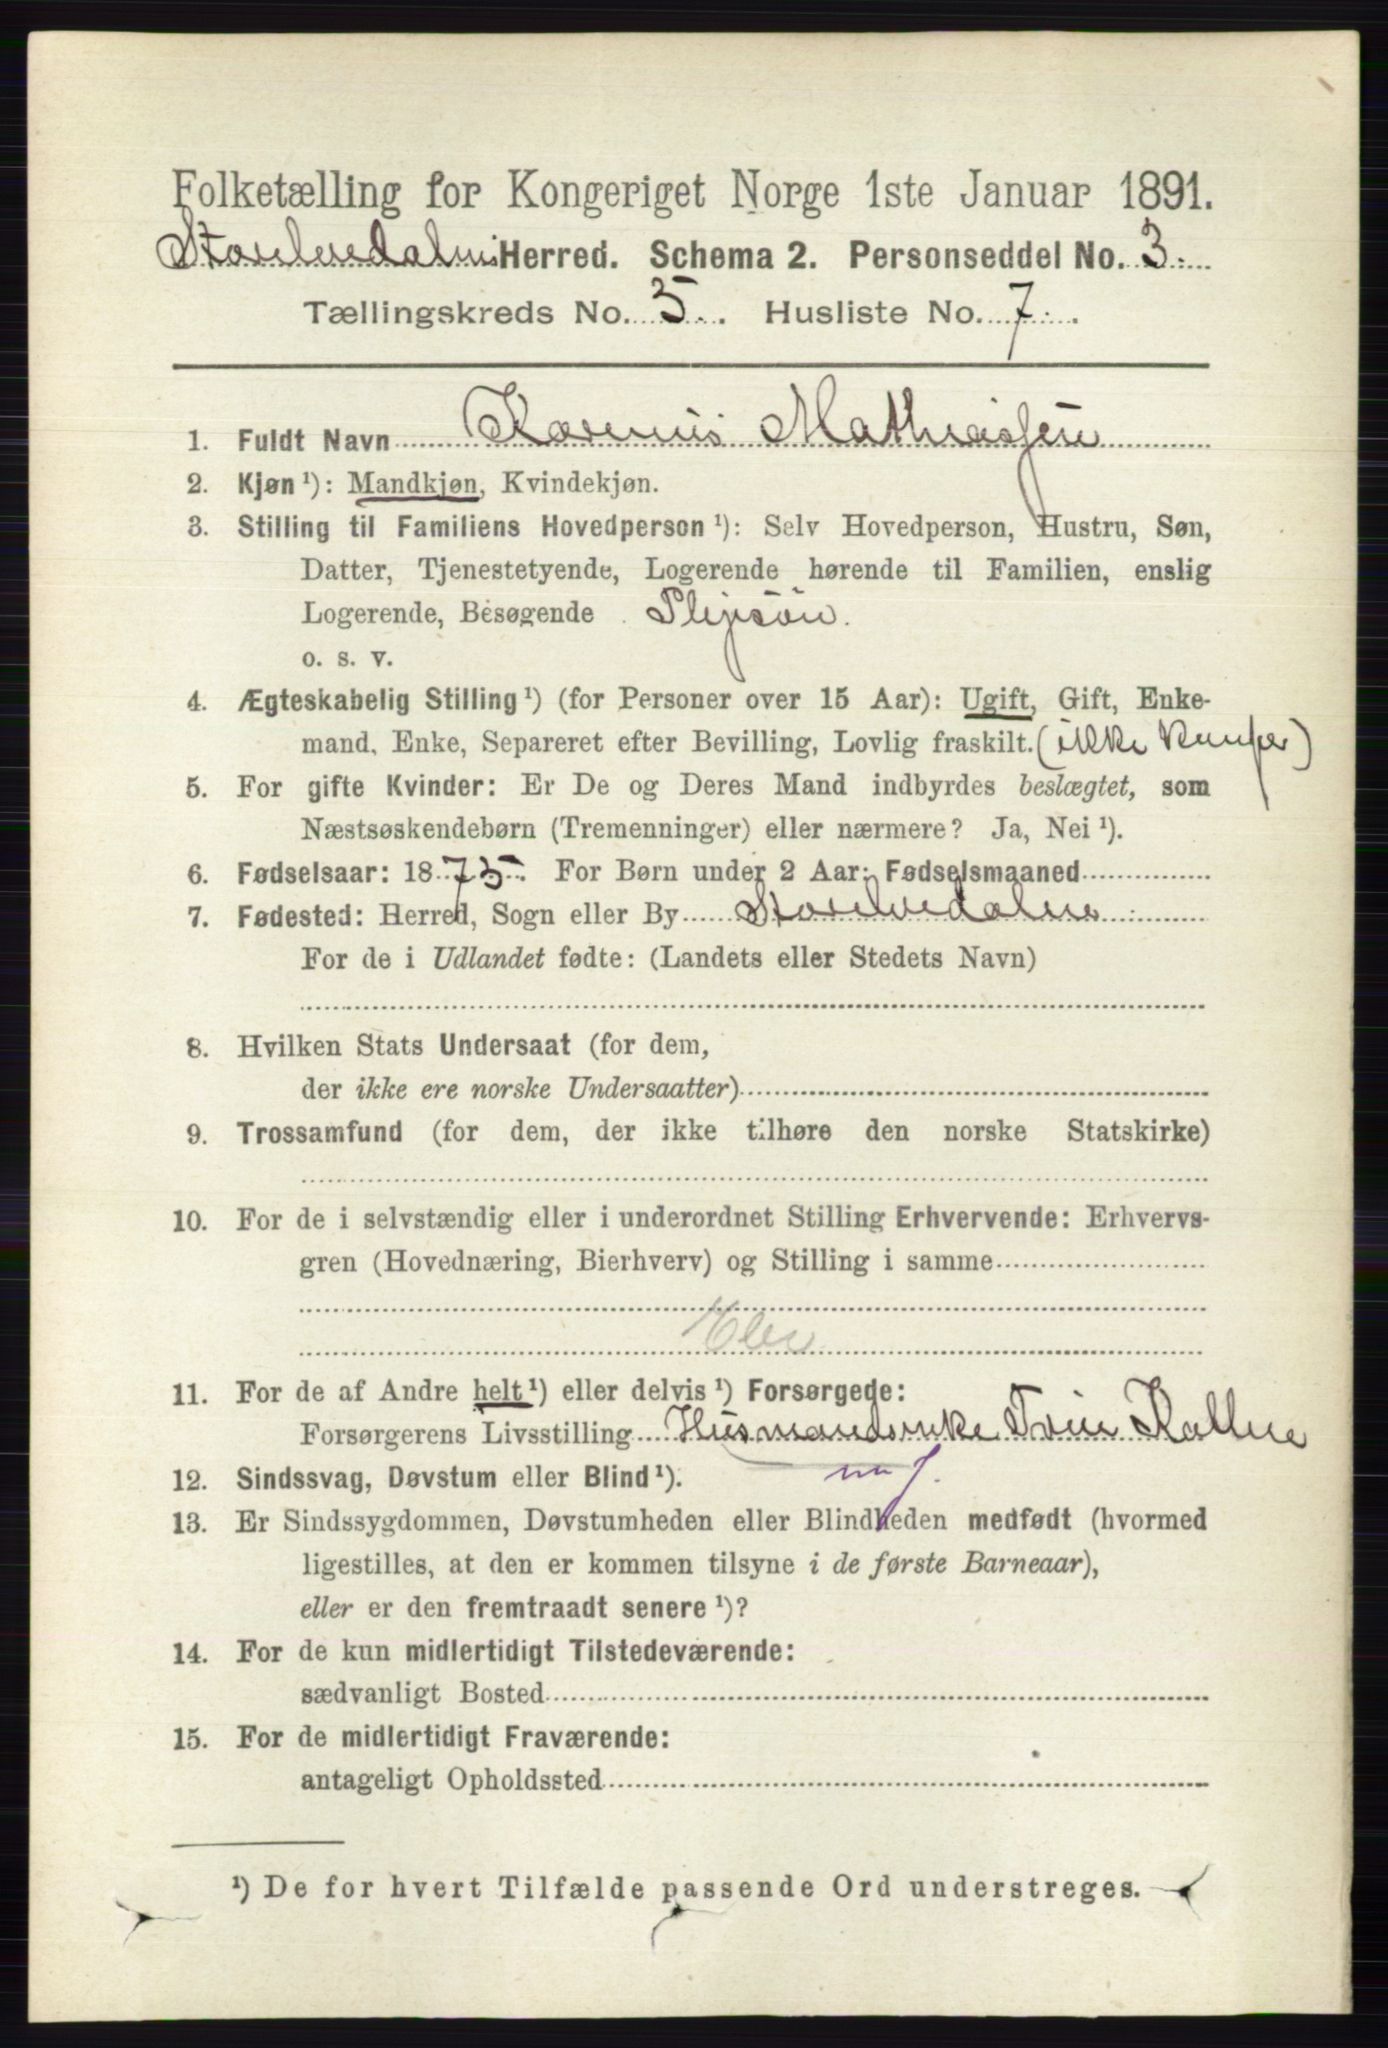 Folketælling for Kongeriget Norge 1ste Januar 1891.
Storelvedalens Herred. Schema 2. Personseddel No. 3.
Tællingskreds No. 5. Husliste No. 7.
1. Fuldt Navn Karenius Mathiassen
2. Kjøn ¹): Mandkjøn, Kvindekjøn.
3. Stilling til Familiens Hovedperson ¹): Selv Hovedperson, Hustru, Søn,
Datter, Tjenestetyende, Logerende hørende til Familien, enslig
Logerende, Besøgende Plejesøn.
o. s. v.
4. Ægteskabelig Stilling ¹) (for Personer over 15 Aar): Ugift, Gift, Enke-
mand, Enke, Separeret efter Bevilling, Lovlig fraskilt. (ikke
5. For gifte Kvinder: Er De og Deres Mand indbyrdes beslægtet, som
Næstsøskendebørn (Tremenninger) eller nærmere? Ja, Nei ¹).
6. Fødselsaar: 1875. For Børn under 2 Aar: Fødselsmaaned
7. Fødested: Herred, Sogn eller By Storelvedalen
For de i Udlandet fødte: (Landets eller Stedets Navn)
8. Hvilken Stats Undersaat (for dem,
der ikke ere norske Undersaatter)
9. Trossamfund (for dem, der ikke tilhøre den norske Statskirke)
10. For de i selvstændig eller i underordnet Stilling Erhvervende: Erhvervs-
gren (Hovednæring, Bierhverv) og Stilling i samme
Elev
11. For de af Andre helt ¹) eller delvis ¹) Forsørgede:
Forsørgerens Livsstilling Husmandsenke
12. Sindssvag, Døvstum eller Blind ¹).
13. Er Sindssygdommen, Døvstumheden eller Blindheden medfødt (hvormed
ligestilles, at den er kommen tilsyne i de første Barneaar),
eller er den fremtraadt senere ¹)?
14. For de kun midlertidigt Tilstedeværende:
sædvanligt Bosted
15. For de midlertidigt Fraværende:
antageligt Opholdssted
¹) De for hvert Tilfælde passende Ord understreges.